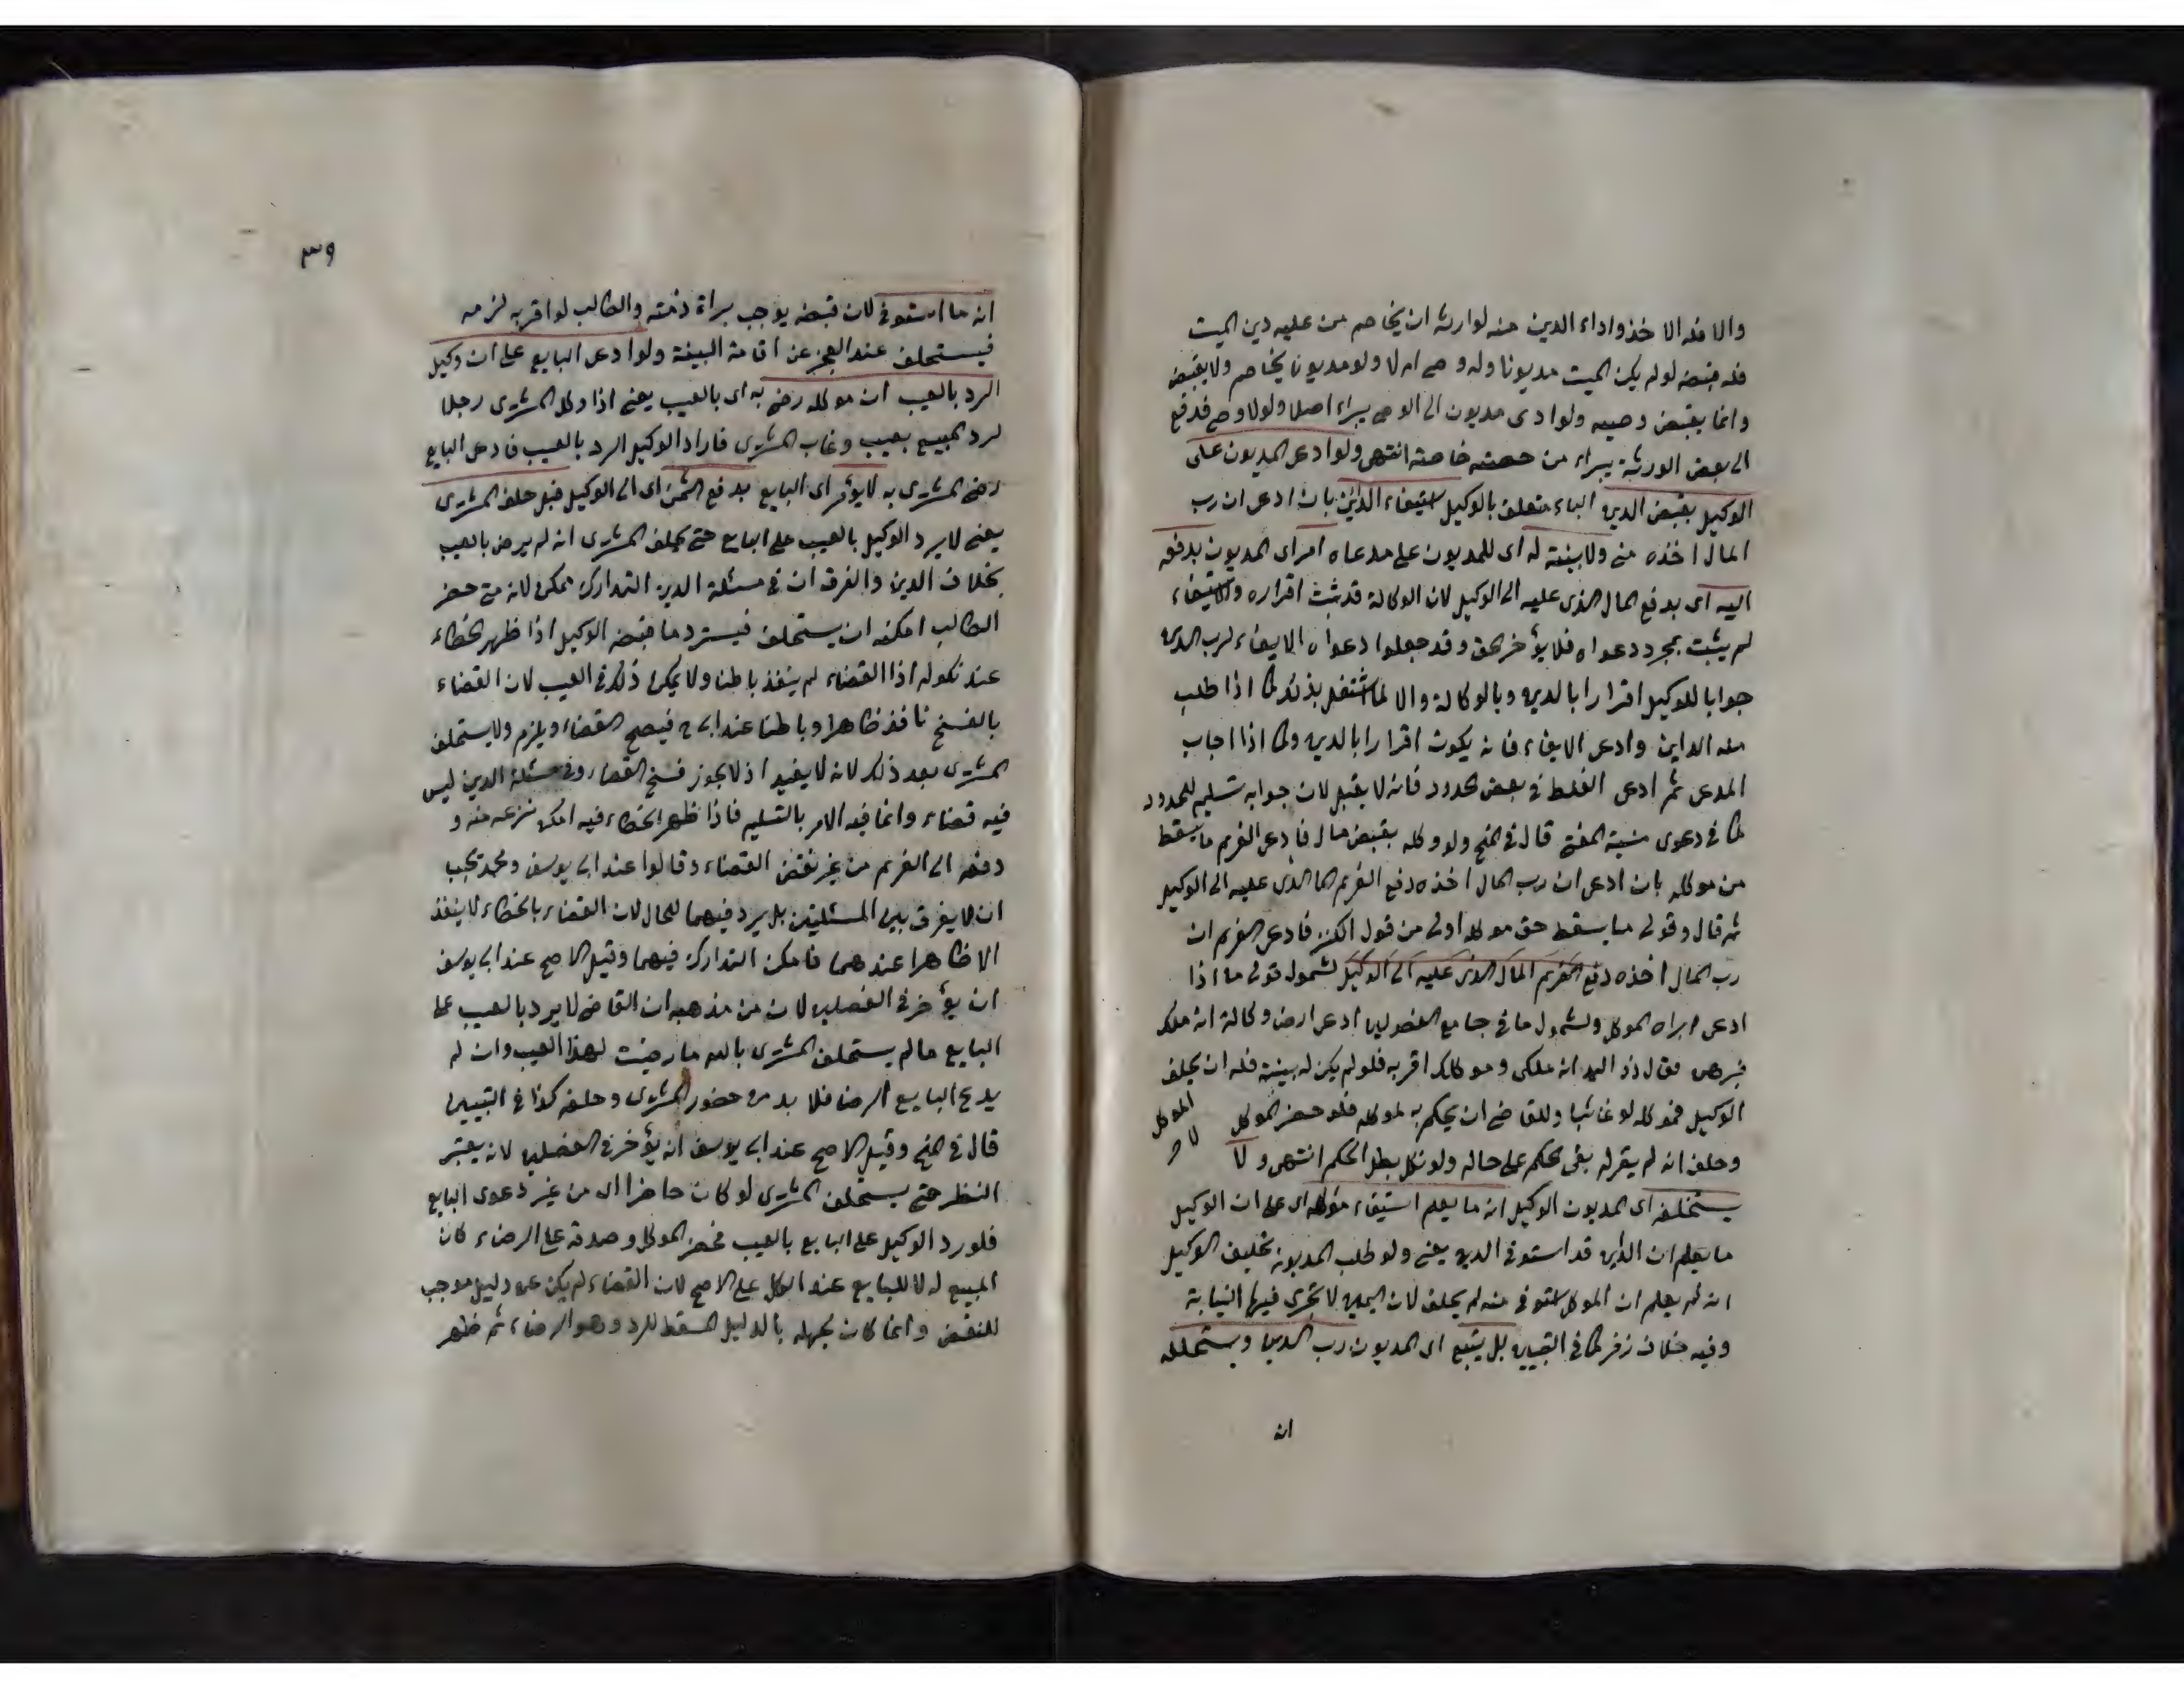 والا فله الاخذ واداء الدين منه لوارثه ان يخاصم من عليه دين الميت
فله قبضه لو لم يكن الميت مديونا وله وصي ام لا ولو مديونا يخاصم ولا يقبض
وانما يقبض وصيه ولو ادى مديون الى الوصي يبراء اصلا ولولا وصي فدفع
الى بعض الورثة يبراء من حصته خاصة انتهى ولو ادعى المديون على
الوكيل بقبض الدين الباء متعلق بالوكيل استيفاء الداين بان ادعى ان رب
المال اخذه مني ولا بينة له اى للمديون على مدعاه امر اى المديون بدفعه
اليه اى بدفع المال الذى عليه الى الوكيل لان الوكالة قد ثبت اقراره والاستيفاء
لم يثبت بمجرد دعواه فلا يؤخر الحق وقد جعلوا دعواه الايفاء لرب الدين
جوابا للوكيل اقرارا بالدين وبالوكالة والا لما اشتغل بذلك كما اذا طلب
منه الداين وادعى الايفاء فانه يكون اقرارا بالدين وكما اذا اجاب
المدعى ثم ادعى الغلط في بعض الحدود فانه لا يقبل لان جوابه تسليم للحدود
كما في دعوى منية المفتي قال في المنح ولو وكله بقبض مال فادعى الغريم ما يسقط
من موكله بان ادعى ان رب المال اخذه دفع الغريم المال الذى عليه الى الوكيل
ثم قال وقولى ما يسقط حق موكله اولى من قول الكنز فادعى الغريم ان
رب المال اخذه دفع الغريم المال الذى عليه الى الوكيل لشمول قولى ما اذا
ادعى ابراء الموكل ولشمول ما في جامع الفصولين ادعى ارضا وكالة انه ملك
فبرهن فقال ذو اليد انه ملكى وموكلك اقر به فلو لم يكن له بينة فله ان يحلف
الوكيل فموكله لو غائبا وللقاضي ان يحكم به لموكله فلو حضر الموكل
الموكل
لا
وحلف انه لم يقر له بقى الحكم على حاله ولو نكل بطل الحكم انتهى ولا
يستحلف اى المديون الوكيل انه ما يعلم استيفاء موكله اى على ان الوكيل
ما يعلم ان الداين قد استوفى الدين يعنى ولو طلب المديون تحليف الوكيل
انه لم يعلم ان الموكل استوفى منه لم يحلف لان اليمين لا تجرى فيها النيابة
وفيه خلاف زفر كما في التبيين بل يتبع اى المديون رب الدين ويستحلفه
انه
٣٩
انه ما استوفى لان قبضه يوجب براة ذمته والطالب لو اقر به لزمه
فيستحلف عند العجز عن اقامة البينة ولو ادعى البايع على ان وكيل
الرد بالعيب ان موكله رضى به اى بالعيب يعنى اذا وكل المشترى رجلا
لرد المبيع بعيب وغاب المشترى فاراد الوكيل الرد بالعيب فادعى البايع
رضى المشترى به لا يؤمر اى البايع بدفع الثمن اى الى الوكيل قبل حلف المشترى
يعنى لا يرد الوكيل بالعيب على البايع حتى يحلف المشترى انه لم يرض بالعيب
بخلاف الدين والفرق ان في مسئلة الدين التدارك ممكن لانه متى حضر
الطالب امكنه ان يستحلف فيسترد ما قبضه الوكيل اذا ظهر الخطاء
عند نكوله اذا القضاء لم ينفذ باطنا ولا يمكن ذلك في العيب لان القضاء
بالفسخ نافذ ظاهرا وباطنا عند ابى ح فيصح القضاء ويلزم ولا يستحلف
المشترى بعد ذلك لانه لا يفيد اذ لا يجوز فسخ القضاء وفي مسئلة الدين ليس
فيه قضاء وانما فيه الامر بالتسليم فاذا ظهر الخطاء فيه امكن نزعه منه و
دفعه الى الغريم من غير نقض القضاء وقالوا عند ابى يوسف ومحمد يجب
ان لا يفرق بين المسئلتين بل يرد فيهما للحال لان القضاء بالخطاء لا ينفذ
الا ظاهرا عندهما فامكن التدارك فيهما وقيل الاصح عند ابى يوسف
ان يؤخر في الفصلين لان من مذهبه ان القاضي لا يرد بالعيب على
البايع ما لم يستحلف المشترى بالله ما رضيت لهذا العيب وان لم
يدع البايع الرضا فلا بد من حضور المشترى وحلفه كذا في التبيين
قال في المنح وقيل الاصح عند ابى يوسف انه يؤخر في الفصلين لانه يعتبر
النظر حتى يستحلف المشترى لو كان حاضرا اى من غير دعوى البايع
فلو رد الوكيل على البايع بالعيب فحضر الموكل وصدقه على الرضاء كان
المبيع له لا للبايع عند الكل على الاصح لان القضاء لم يكن عن دليل موجب
للنقض وانما كان بجهله بالدليل المسقط للرد وهو الرضاء ثم ظهر